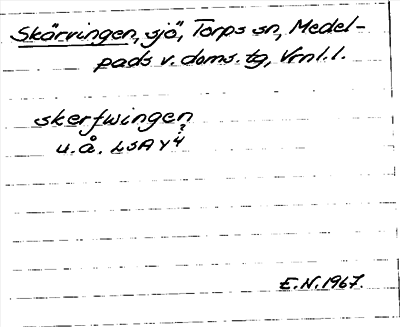 Skärvingen, sjö, Torps sn, Medel-
pads v. doms. tg, Vrnl. l.
skerfwingen
u. å. LSA Y 4
E.N. 1967.